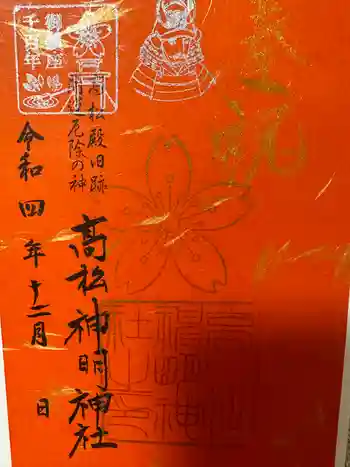 奉祝
高松殿旧跡
方違厄除の神
高松神明神社
令和四年十二月 日
御鎮座
千百年
高松
神明神
社之印